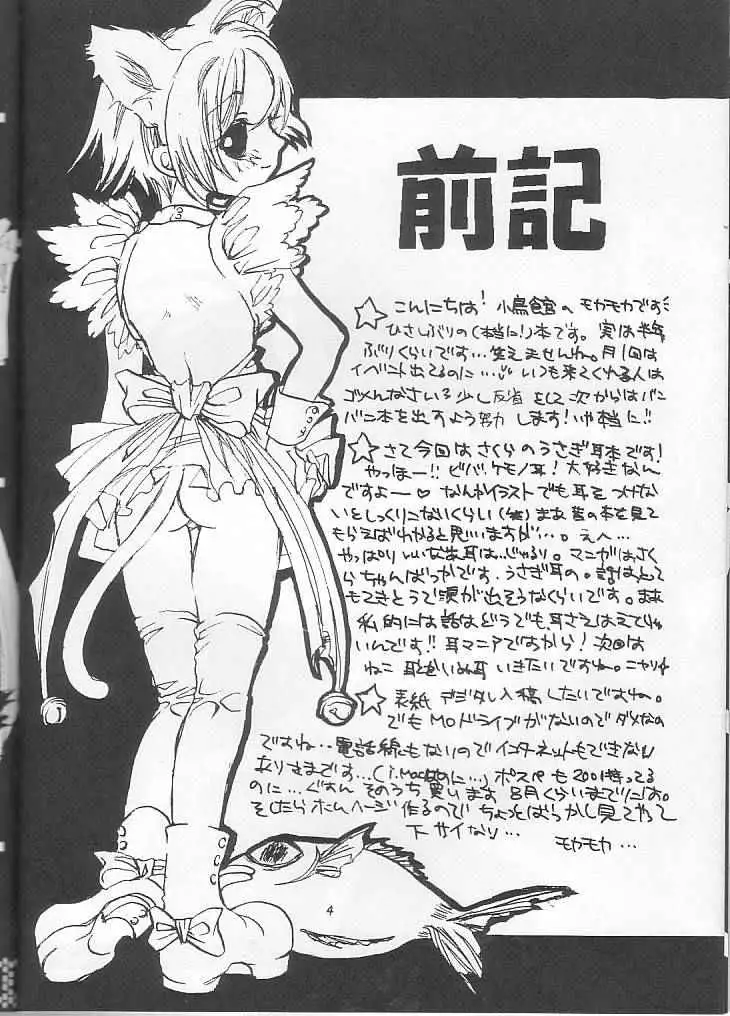 前記
☆こんにちは!小鳥館のモカモカです
ひさしぶりの(本当に!)本です。実は半年
ぶりくらいです…笑えませんね。月1回は
イベント出てるのに…いつも来てくれる人は
ゴメんなさい 少し反省をして次からはバン
バン本を出すよう努力します!いや本当に!!
☆さて今回はさくらのうさぎ耳本です!
やっほー!!ビバ、ケモノ耳!大好きなん
ですよー♡なんかイラストでも耳をつけない
としっくりこないくらい(笑)まあ昔の本を見て
もらえばわかると思いますが…。えへ…
やっぱりいいなあ耳は…じゅるり。マンガはさく
らちゃんばっかです、うさぎ耳の。話はとて
もてきとうで涙が出そうなくらいです。まあ
私的には話はどうでも、耳さえはえてりゃ
いんです!!耳マニアですから!次回は
ねこ耳かいぬ耳いきたいですね。ニヤリ
☆表紙デジタル入稿したいですね。
でもMOドライブがないのでダメなの
ですね…電話線もないのでインターネットもできない
ありさまです…(i.Macなのに…)ポスペも2001持ってる
のに…ぐすん そのうち買います 8月くらいまでには。
そしたらホームページ作るのでちょっとばっかし見てやって
下サイな…
モカモカ…
4